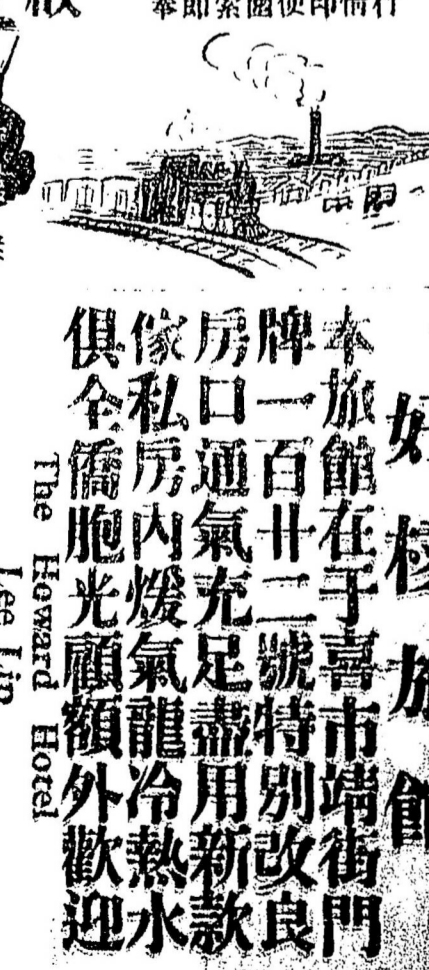 行情印便函索即奉
好 旅館
本旅館在于喜市端街門
牌一百廿二號特別改良
房口通氣充足盡用新款
傢私房內煖氣龍冷熱水
俱全僑胞光顧額外歡迎
The Howard Hotel
Lee